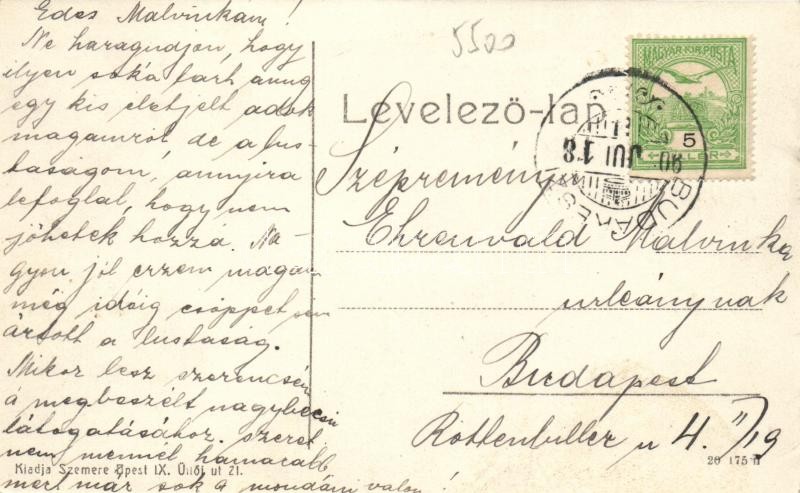 Edes Malvinkám!
Ne haragudjon, hogy
ilyen soká tart amig
egy kis életjelt adok
magamról de a lus-
taságom, annyira
lefoglal, hogy nem
jöhetek hozzá. Na-
gyon jól érzem magam
még idáig csöppet sem
ártott a lustaság.
Mikor lesz szerencsém
á megbeszélt nagybecsű
látogatásához. szeret
nem mennél hamarabb
mert már sok a mondani valóm!
Kiadja Szemere Bpest IX. Üllői ut 21.
5500
Levelező-lap
MAGYAR KIR. POSTA
5
FILLER
BUDAKESZI
JUL 18
Szépreményű
Ehrenvald Malvinka
urleánynak
Budapest
Rottenbiller u 4. II/19
20 175 II